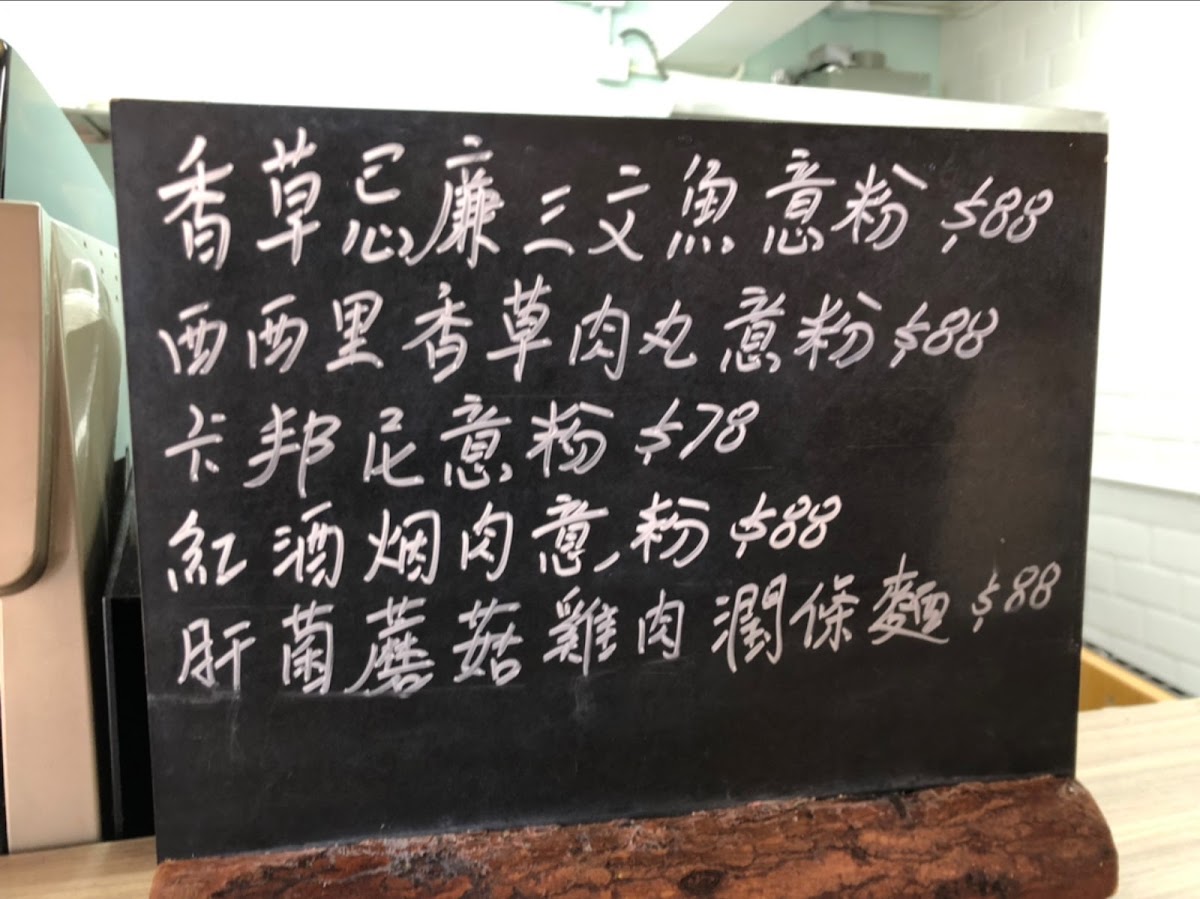 香草忌廉三文魚意粉 $88
西西里香草肉丸意粉 $88
卡邦尼意粉 $78
紅酒烟肉意粉 $88
肝菌蘑菇雞肉濶條麵 $88